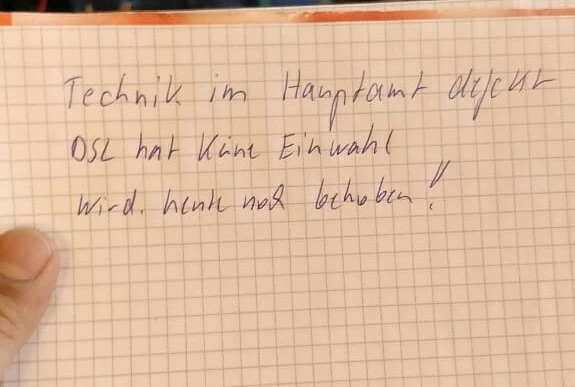 Technik im Hauptamt defekt
DSL hat Keine Einwahl
wird. heute noch behoben!